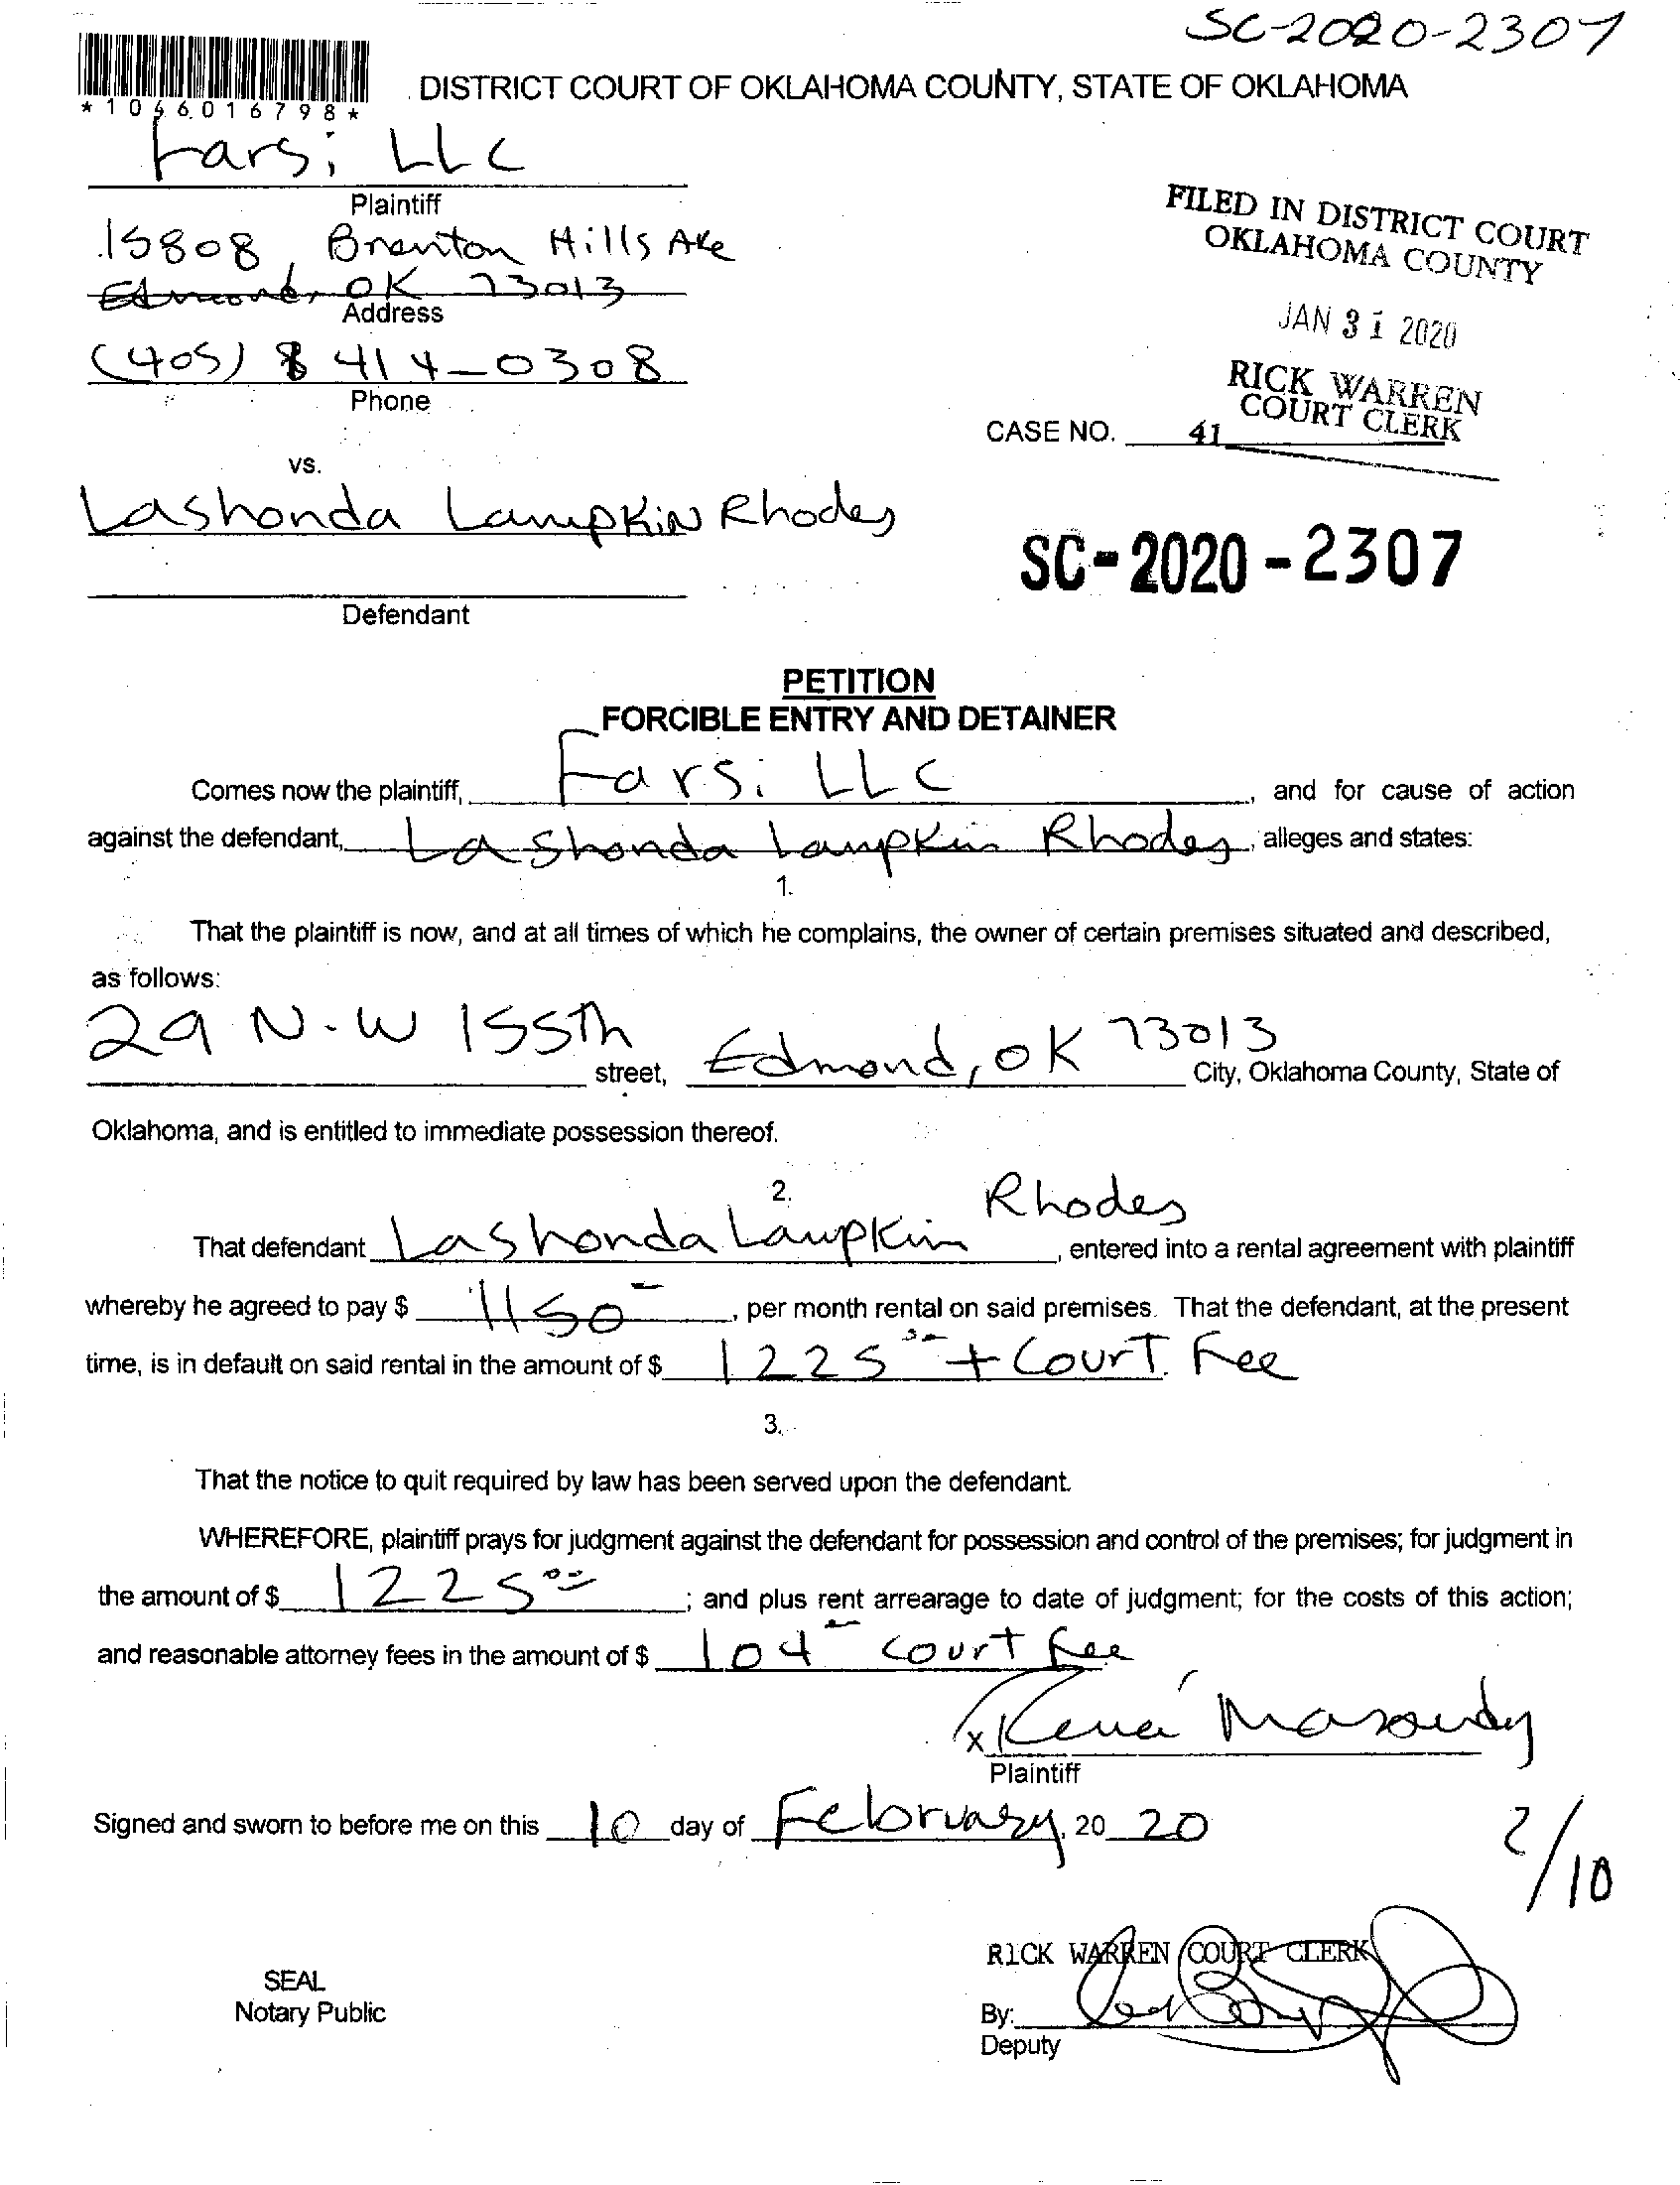 SC-2020-2307
*1066016798*
DISTRICT COURT OF OKLAHOMA COUNTY, STATE OF OKLAHOMA
Farsi LLC
Plaintiff
15808 Brenton Hills Ave
Edmond, OK 73013
Address
(405) 8 414-0308
Phone
FILED IN DISTRICT COURT
OKLAHOMA COUNTY
JAN 31 2020
RICK WARREN
COURT CLERK
CASE NO. 41
vs.
Lashonda Lampkin Rhodes
SC-2020-2307
Defendant
PETITION
FORCIBLE ENTRY AND DETAINER
Comes now the plaintiff, Farsi LLC, and for cause of action
against the defendant, Lashonda Lampkin Rhodes, alleges and states:
1.
That the plaintiff is now, and at all times of which he complains, the owner of certain premises situated and described,
as follows:
29 N.W 155th street, Edmond, OK 73013 City, Oklahoma County, State of
Oklahoma, and is entitled to immediate possession thereof.
2.
That defendant Lashonda Lampkin Rhodes, entered into a rental agreement with plaintiff
whereby he agreed to pay $ 1150-, per month rental on said premises. That the defendant, at the present
time, is in default on said rental in the amount of $ 1225 00 + Court Fee
3.
That the notice to quit required by law has been served upon the defendant.
WHEREFORE, plaintiff prays for judgment against the defendant for possession and control of the premises; for judgment in
the amount of $ 1225 00; and plus rent arrearage to date of judgment; for the costs of this action;
and reasonable attorney fees in the amount of $ 104- court fee
x Rena Masoudy
Plaintiff
Signed and sworn to before me on this 10 day of February, 20 20
2/10
RICK WARREN COURT CLERK
SEAL
Notary Public
By:
Deputy